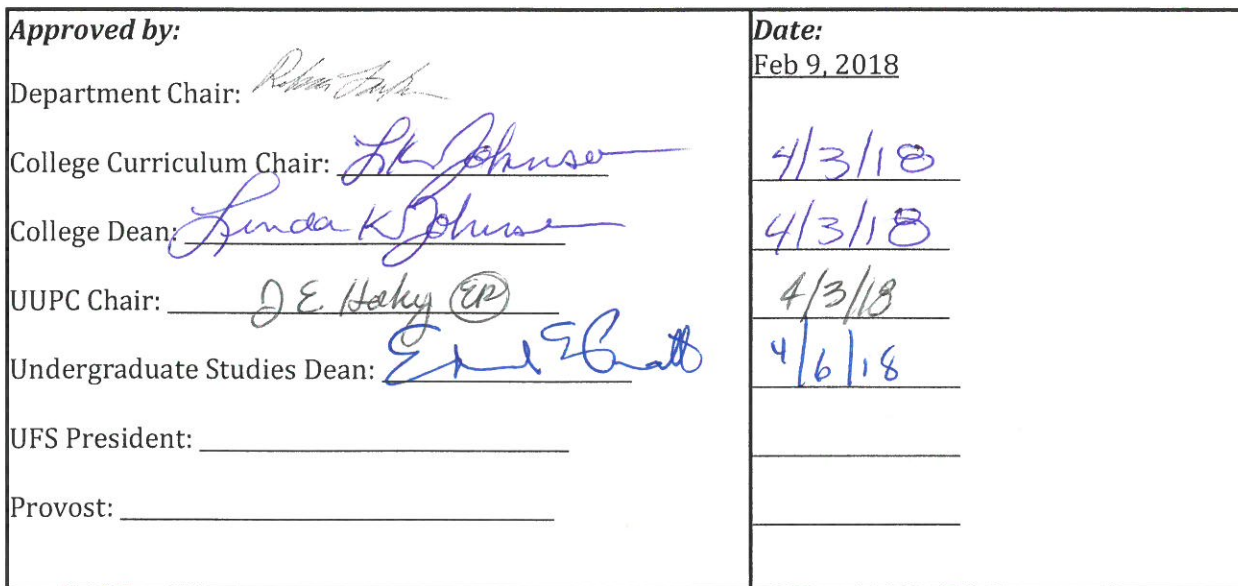 Approved by:
Date:
Feb 9, 2018
Department Chair:
College Curriculum Chair: LK Johnson 4/3/18
College Dean: Linda K Johnson 4/3/18
UUPC Chair: J E Haky ER 4/3/18
Undergraduate Studies Dean: Edward E Pratt 4/6/18
UFS President:
Provost: